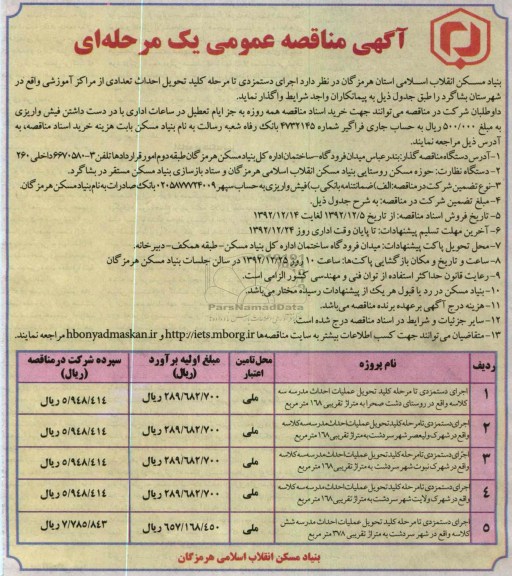 آگهی مناقصه عمومی یک مرحله‌ای
بنیاد مسکن انقلاب اسلامی استان هرمزگان در نظر دارد اجرای دستمزدی تا مرحله کلید تحویل احداث تعدادی از مراکز آموزشی واقع در
شهرستان بشاگرد را طبق جدول ذیل به پیمانکاران واجد شرایط واگذار نماید.
داوطلبان شرکت در مناقصه می‌توانند جهت خرید اسناد مناقصه همه روزه به جز ایام تعطیل در ساعات اداری با در دست داشتن فیش واریزی
به مبلغ ۵۰۰/۰۰۰ ریال به حساب جاری فراگیر شماره ۴۷۳۲۱۴۵ بانک رفاه شعبه رسالت به نام بنیاد مسکن بابت هزینه خرید اسناد مناقصه، به
آدرس ذیل مراجعه نمایند.
۱- آدرس دستگاه مناقصه گذار: بندرعباس میدان فرودگاه-ساختمان اداره کل بنیاد مسکن هرمزگان طبقه دوم امور قراردادها تلفن ۳-۶۶۷۰۵۸۰ داخلی ۲۶۰
۲- دستگاه نظارت: حوزه مسکن روستایی بنیاد مسکن انقلاب اسلامی هرمزگان و ستاد بازسازی بنیاد مسکن مستقر در بشاگرد.
۳- نوع تضمین شرکت در مناقصه: الف) ضمانتنامه بانکی ب) فیش واریزی به حساب سپهر ۰۲۰۵۸۷۷۷۲۴۰۰۹ بانک صادرات به نام بنیاد مسکن هرمزگان.
۴- مبلغ تضمین شرکت در مناقصه: به شرح جدول ذیل.
۵- تاریخ فروش اسناد مناقصه: از تاریخ ۱۳۹۲/۱۲/۵ لغایت ۱۳۹۲/۱۲/۱۴
۶- آخرین مهلت تسلیم پیشنهادات: تا پایان وقت اداری روز ۱۳۹۲/۱۲/۲۴
۷- محل تحویل پاکت پیشنهادات: میدان فرودگاه ساختمان اداره کل بنیاد مسکن-طبقه همکف-دبیرخانه.
۸- ساعت و تاریخ و مکان بازگشایی پاکت‌ها: ساعت ۱۰ روز ۱۳۹۲/۱۲/۲۵ در سالن جلسات بنیاد مسکن هرمزگان
۹- رعایت قانون حداکثر استفاده از توان فنی و مهندسی کشور الزامی است.
۱۰- بنیاد مسکن در رد یا قبول هر یک از پیشنهادات رسیده مختار می‌باشد.
۱۱- هزینه درج آگهی برعهده برنده مناقصه می‌باشد.
۱۲- سایر جزئیات و شرایط در اسناد مناقصه درج شده است.
۱۳- متقاضیان می‌توانند جهت کسب اطلاعات بیشتر به سایت مناقصه‌ها http://iets.mborg.ir و hbonyadmaskan.ir مراجعه نمایند.
ParsNamadData
ردیف نام پروژه محل تامین اعتبار مبلغ اولیه برآورد (ریال) سپرده شرکت در مناقصه (ریال)
۱ اجرای دستمزدی تا مرحله کلید تحویل عملیات احداث مدرسه سه ملی ۲۸۹/۶۸۲/۷۰۰ ریال ۵/۹۴۸/۴۱۴ ریال
کلاسه واقع در روستای دشت صحرا به متراژ تقریبی ۱۶۸ متر مربع
۲ اجرای دستمزدی تا مرحله کلید تحویل عملیات احداث مدرسه سه کلاسه ملی ۲۸۹/۶۸۲/۷۰۰ ریال ۵/۹۴۸/۴۱۴ ریال
واقع در شهرک ولیعصر شهر سردشت به متراژ تقریبی ۱۶۸ متر مربع
۳ اجرای دستمزدی تا مرحله کلید تحویل عملیات احداث مدرسه سه کلاسه ملی ۲۸۹/۶۸۲/۷۰۰ ریال ۵/۹۴۸/۴۱۴ ریال
واقع در شهرک نبوت شهر سردشت به متراژ تقریبی ۱۶۸ متر مربع
۴ اجرای دستمزدی تا مرحله کلید تحویل عملیات احداث مدرسه سه کلاسه ملی ۲۸۹/۶۸۲/۷۰۰ ریال ۵/۹۴۸/۴۱۴ ریال
واقع در شهرک ولایت شهر سردشت به متراژ تقریبی ۱۶۸ متر مربع
۵ اجرای دستمزدی تا مرحله کلید تحویل عملیات احداث مدرسه شش ملی ۶۵۷/۱۶۸/۴۵۰ ریال ۷/۷۸۵/۸۴۳ ریال
کلاسه واقع در شهر سردشت به متراژ تقریبی ۳۷۸ متر مربع
بنیاد مسکن انقلاب اسلامی هرمزگان